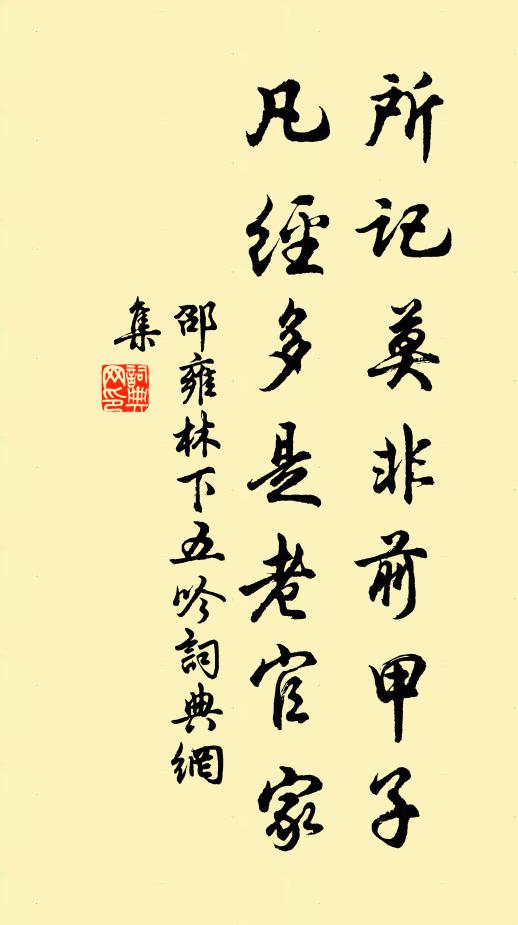 所記莫非前甲子
凡經多是老官家
邵雍林下五吟詞典網
集
詞典
网印